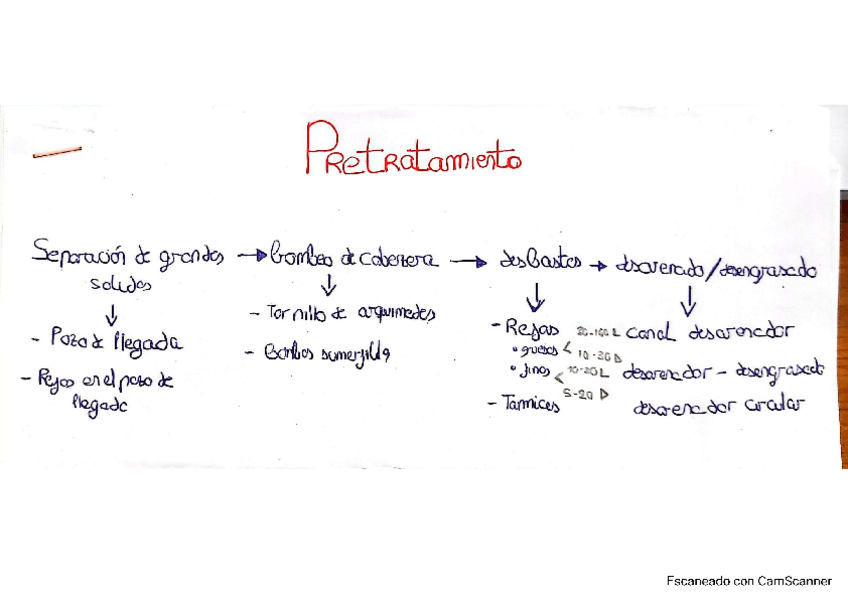 Pretratamiento
Separación de grandes solidos → bombeo de cabecera → desbastes → desarenado/desengrasado
↓
- Pozo de llegada
- Rejas en el pozo de llegada
↓
- Tornillo de arquimedes
- Bombas sumergilds
↓
- Rejas
• gruesos < 20-100 L
10-30 D
• finos < 10-20 L
5-20 D
- Tamices
↓
Canal desarenador
desarenador - desengrasado
desarenador circular
Escaneado con CamScanner